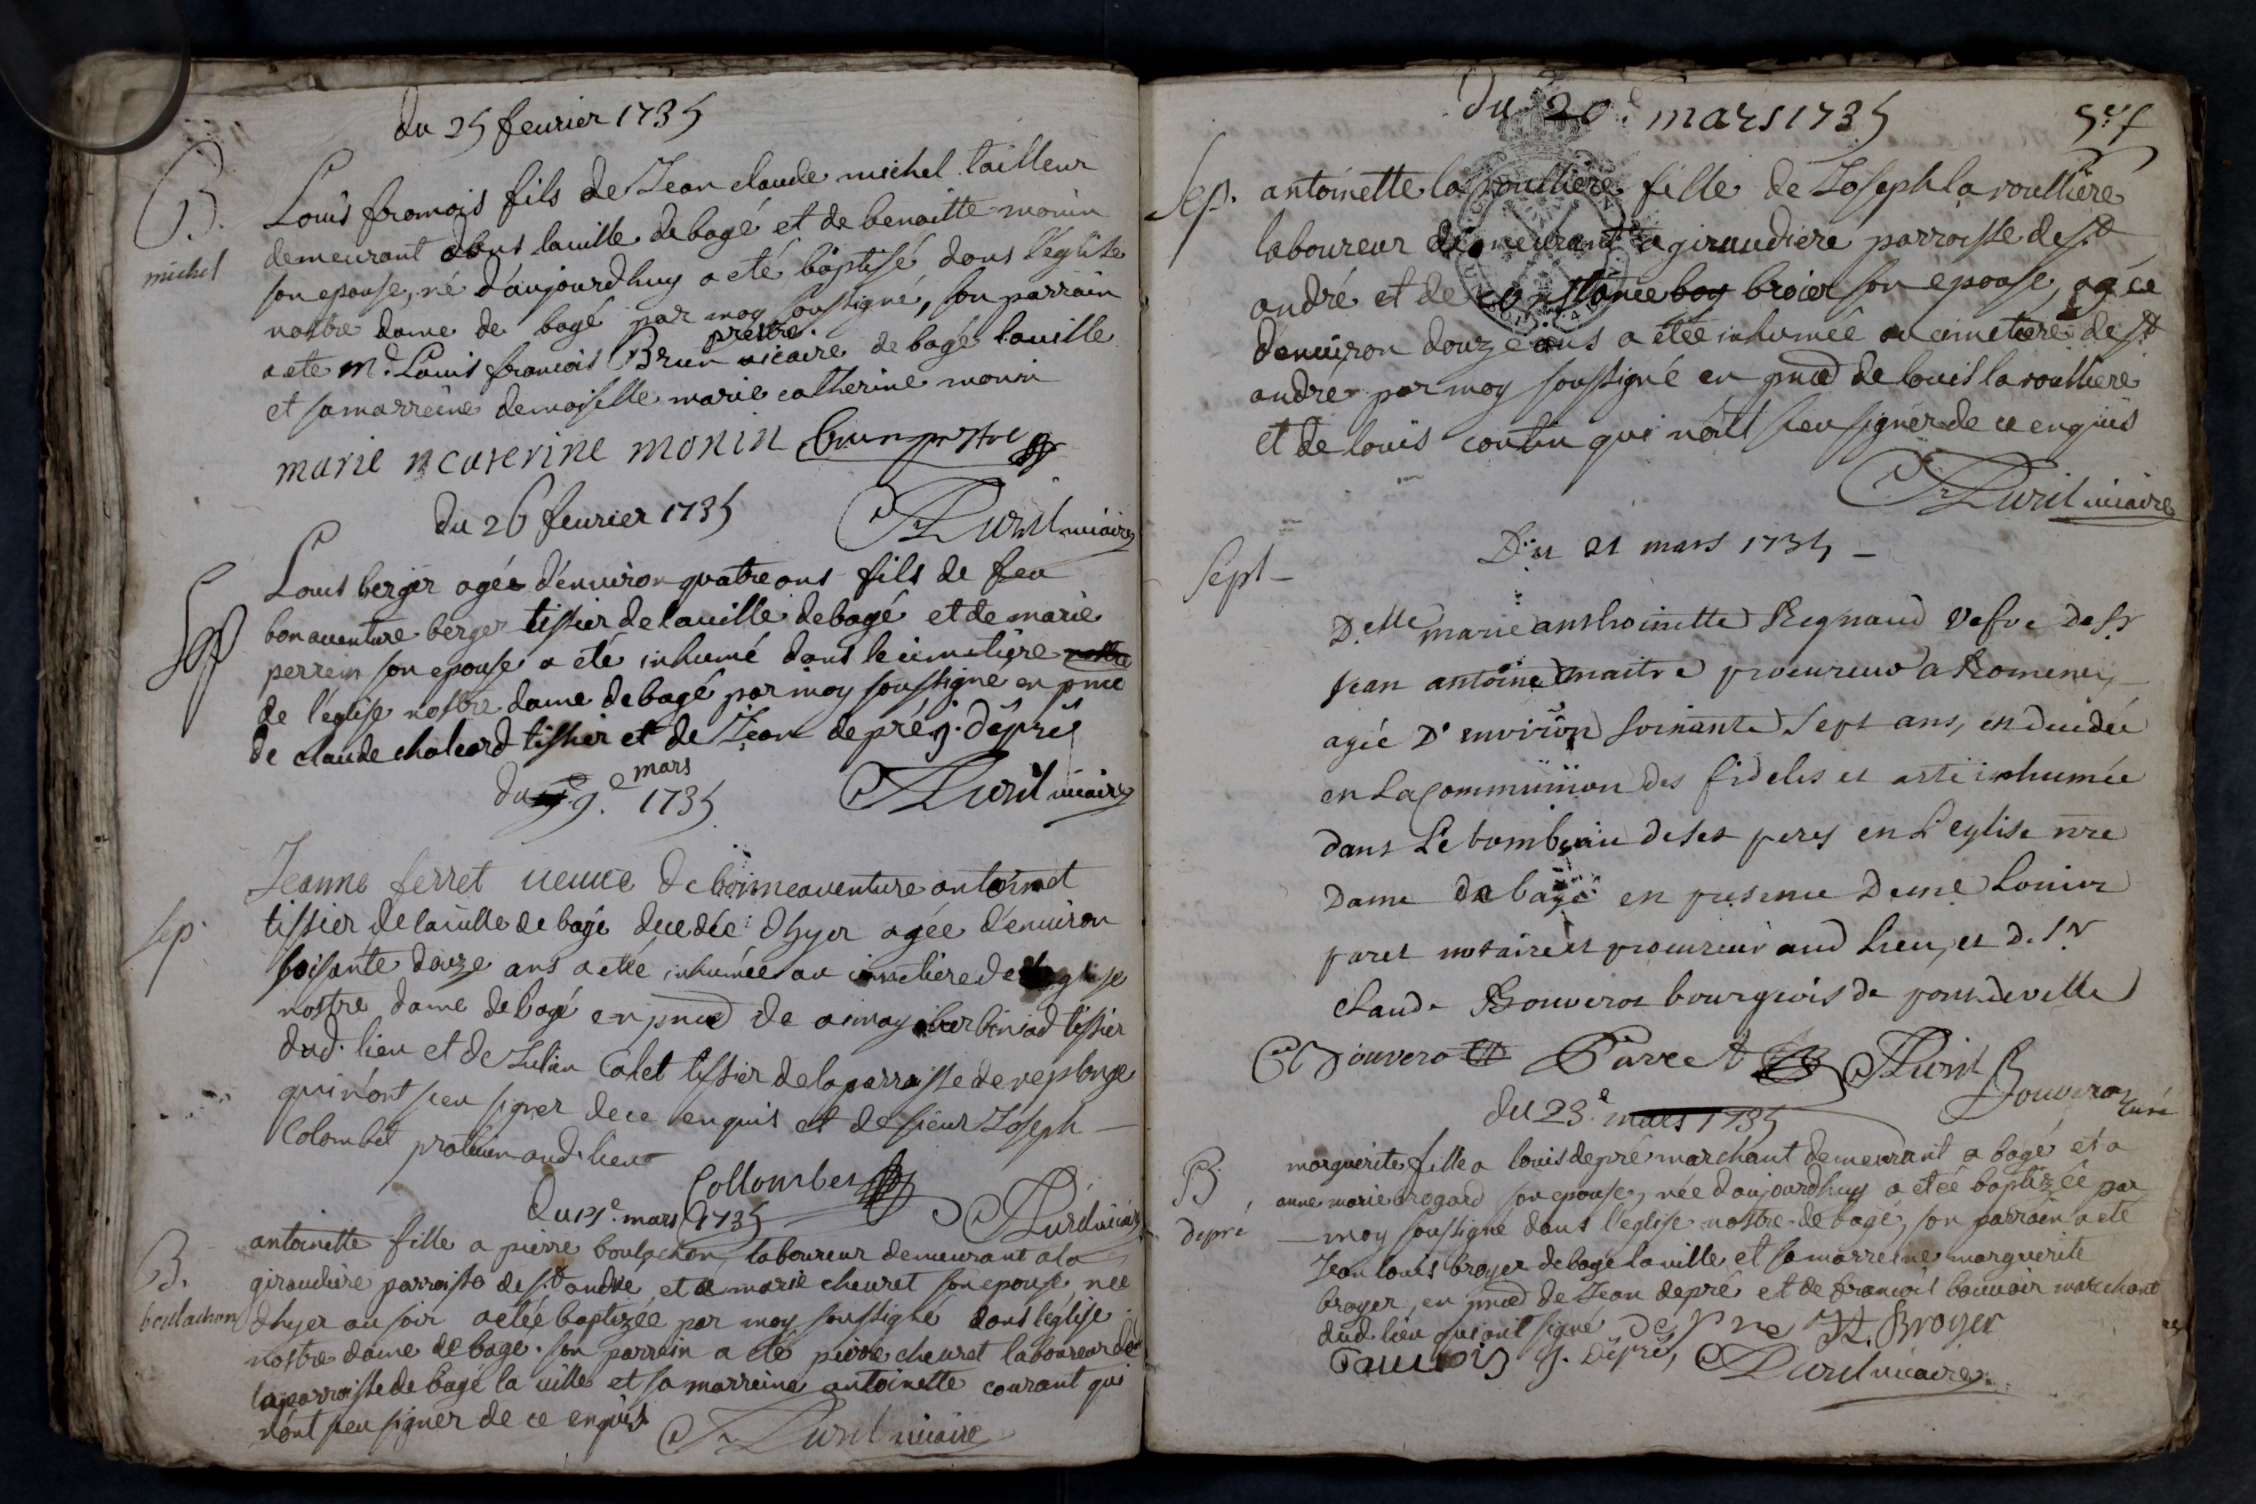 du 25 feurier 1735
B.
michel
Louis francois fils de Jean claude michel tailleur
demeurant dans lauille de bagé et de benoitte monin
son epouse, né d'aujourdhuy a eté baptisé dans l'eglise
nostre dame de bagé par moy soussigné, son parrain
a eté mr. Louis francois Brun prestre uicaire de bagé lauille
et sa marreine demoiselle marie catherine monin
marie caterine monin Brun prestre
du 26 feurier 1735
uicaire
Sep
Louis berger agée d'enuiron quatre ans fils de feu
bonauenture berger tissier de lauille de bagé et de marie
perrein son epouse a été inhumé dans le cimetiere nostre
de l'eglise nostre dame de bagé par moy soussigne en pnce
de claude chaleard tissier et de Jean depré J. Deprés
du 9e mars 1735
uicaire
sep.
Jeanne ferret ueuue de bonneauenture
tissier de lauille de bagé decedée d'hyer agée d'enuiron
soisante douze ans a etée inhumée au cimetiere de l'eglise
nostre dame de bagé en pnce de tissier
dud. lieu et de Julien Colet tissier de la parroisse de replonge
qui n'ont sceu signer de ce enquis et de sieur Joseph
Colombet praticien aud. lieu
Collombet
uicaire
Du mars 1735
B.
boulachon
antoinette fille a pierre boulachon laboureur demeurant a la
giraudiere parroisse de st. andré et a marie cheuret son epouse née
d'hyer au soir a etée baptizée par moy soussigné dans l'eglise
nostre dame de bagé. son parrain a eté pierre cheuret laboureur de
la parroisse de bagé la uille et sa marreine antoinette courant qui
n'ont sceu signer de ce enquis
uicaire
du 20e. mars 1735
Sep.
antoinette la roulliere fille de Joseph la roulliere
laboureur demeurant a giraudiere parroisse de st
andré et de constance boy broier son epouse, agée
d'enuiron douze ans a etée inhumée au cimetiere de st
andré par moy soussigné en pnce de louis la roulliere
et de louis coulin qui n'ont sceu signer de ce enquis
uicaire
Du 21 mars 1735
Sept
Delle marie anthoinette Regnaud Vefve de Sr
Jean antoine maitre procureur a Romenay
agée D'environ soixante sept ans, est decedée
en La Communion des fideles et a esté inhumée
dans Le tombeau de ses peres en L'eglise nre
Dame de bagé en presence De me
paret notaire et procureur aud Lieu, et D. Sr
claude Bouverot bourgeois de pontdeville
Bouverot Parret
Bouverot curé
du 23e. mars 1735
B.
depré
marguerite fille a louis depré marchant demeurant a bagé et a
anne marie brogard son epouse, née d'aujourdhuy a etée baptizée par
moy soussigné dans l'eglise nostre de bagé, son parrain a eté
Jean louis broyer de bagé la uille et sa marreine marguerite
broyer, en pnce de Jean depré et de francois bauuoir marchant
dud. lieu qui ont signé depré JL. Broyer
J. Deprés uicaire